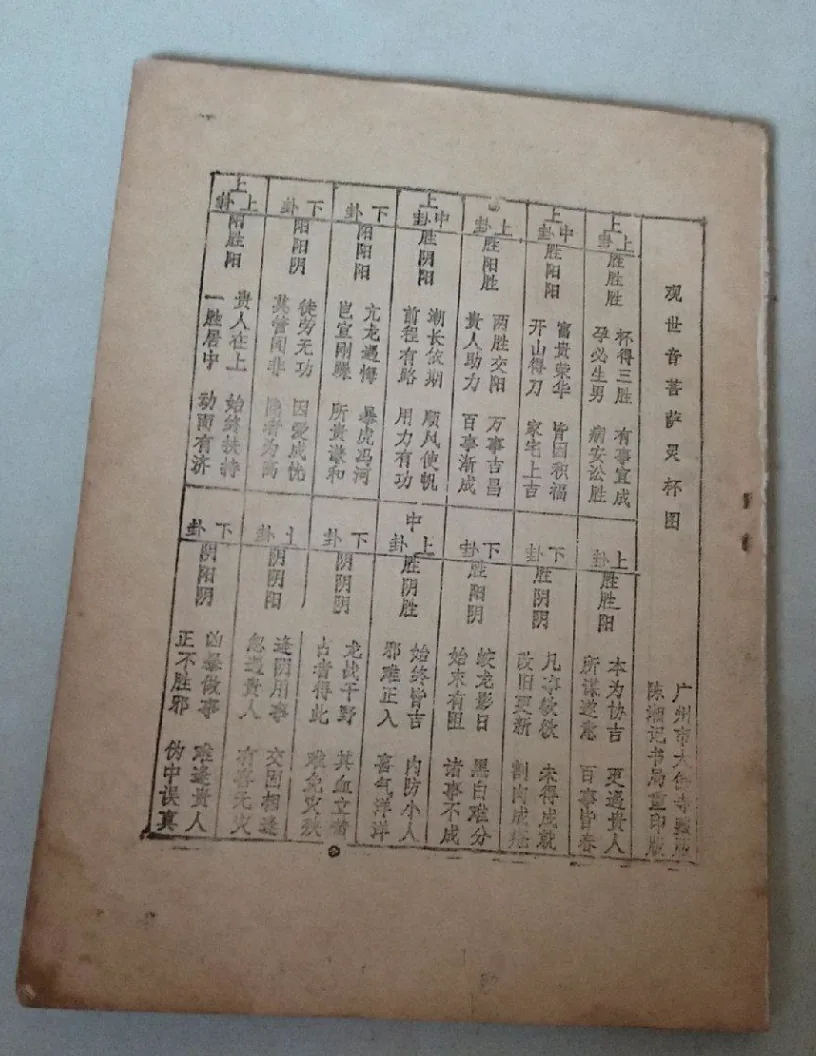 观世音菩萨灵杯图
广州市大佛寺
陈湘记书局重印版
上上卦
胜胜胜
杯得三胜 有事宜成
孕必生男 病安讼胜
上中卦
胜阳阳
富贵荣华 皆因积福
开山得刀 家宅上吉
上卦
胜阳胜
两胜交阳 万事吉昌
贵人助力 百事渐成
上中卦
胜阴阳
潮长依期 顺风使帆
前程有路 用力有功
下卦
阳阳阳
亢龙遇悔 暴虎冯河
岂宜刚躁 所贵谦和
下卦
阳阳阴
徒劳无功 因爱成忧
莫管闲非 为高
上上卦
阳胜阳
贵人在上 始终扶持
一胜居中 动而有济
上卦
胜胜阳
本为协吉 更遇贵人
所谋遂意 百事皆春
下卦
胜阴阴
凡事欲欲 未得成就
改旧更新 割肉成疮
下卦
胜阳阴
蛟龙影日 黑白难分
始末有阻 诸事不成
中上卦
胜阴胜
始终皆吉 内防小人
邪难正入 喜气洋洋
下卦
阴阴阴
龙战于野 其血立黄
占者得此 难免灾殃
上卦
阴阴阳
逢阴用事 交因相逢
忽遇贵人 有喜无灾
下卦
阴阳阴
凶暴做事 难逢贵人
正不胜邪 伪中误真